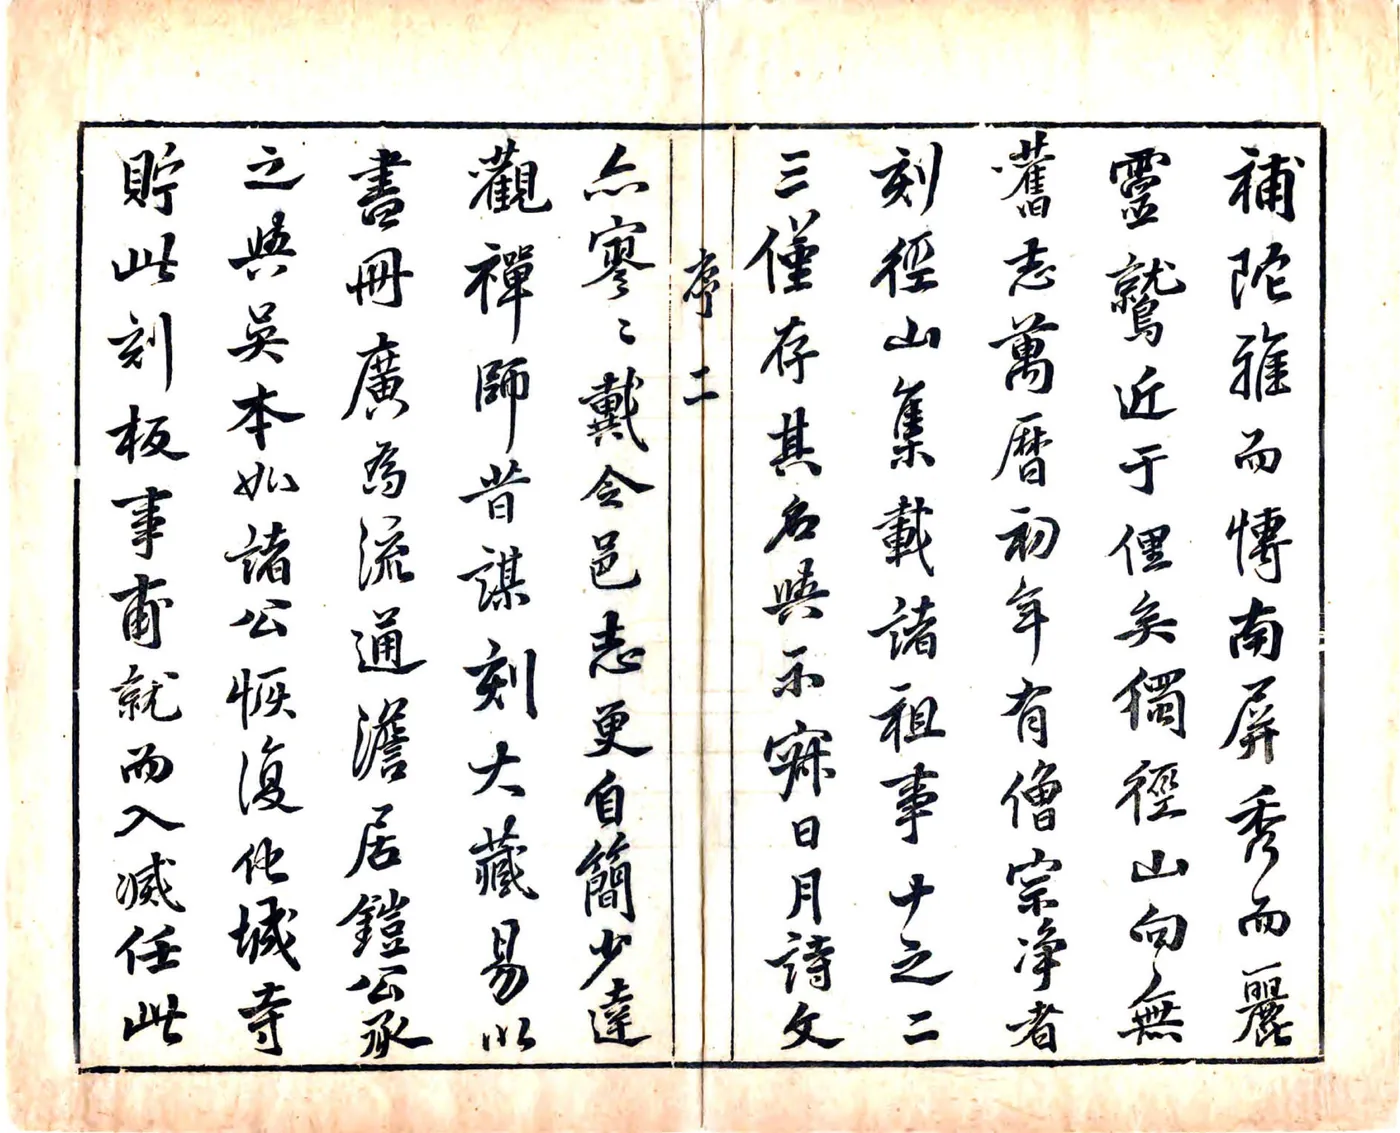 補陀雅而博南屏秀而麗
靈鷲近于俚矣獨徑山向無
舊志萬曆初年有僧宗淨者
刻徑山集載諸祖事十之二
三僅存其名與示寂日月詩文
序 二
亦寥〻戴令邑志更自簡少達
觀禪師昔謀刻大藏易以
書冊廣為流通澹居鎧公承
之與吳本如諸公恢復化城寺
貯此刻板事甫就而入滅任此